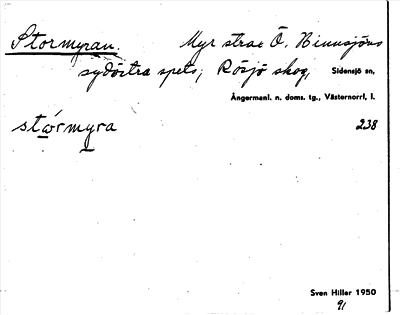 Stormyran. Myr strax Ö. Binnsjöns
sydöstra spets, Rösjö skog, Sidensjö sn,
Ångermanl. n. doms. tg., Västernorrl. l.
stωrmyra 238
Sven Hiller 1950
91